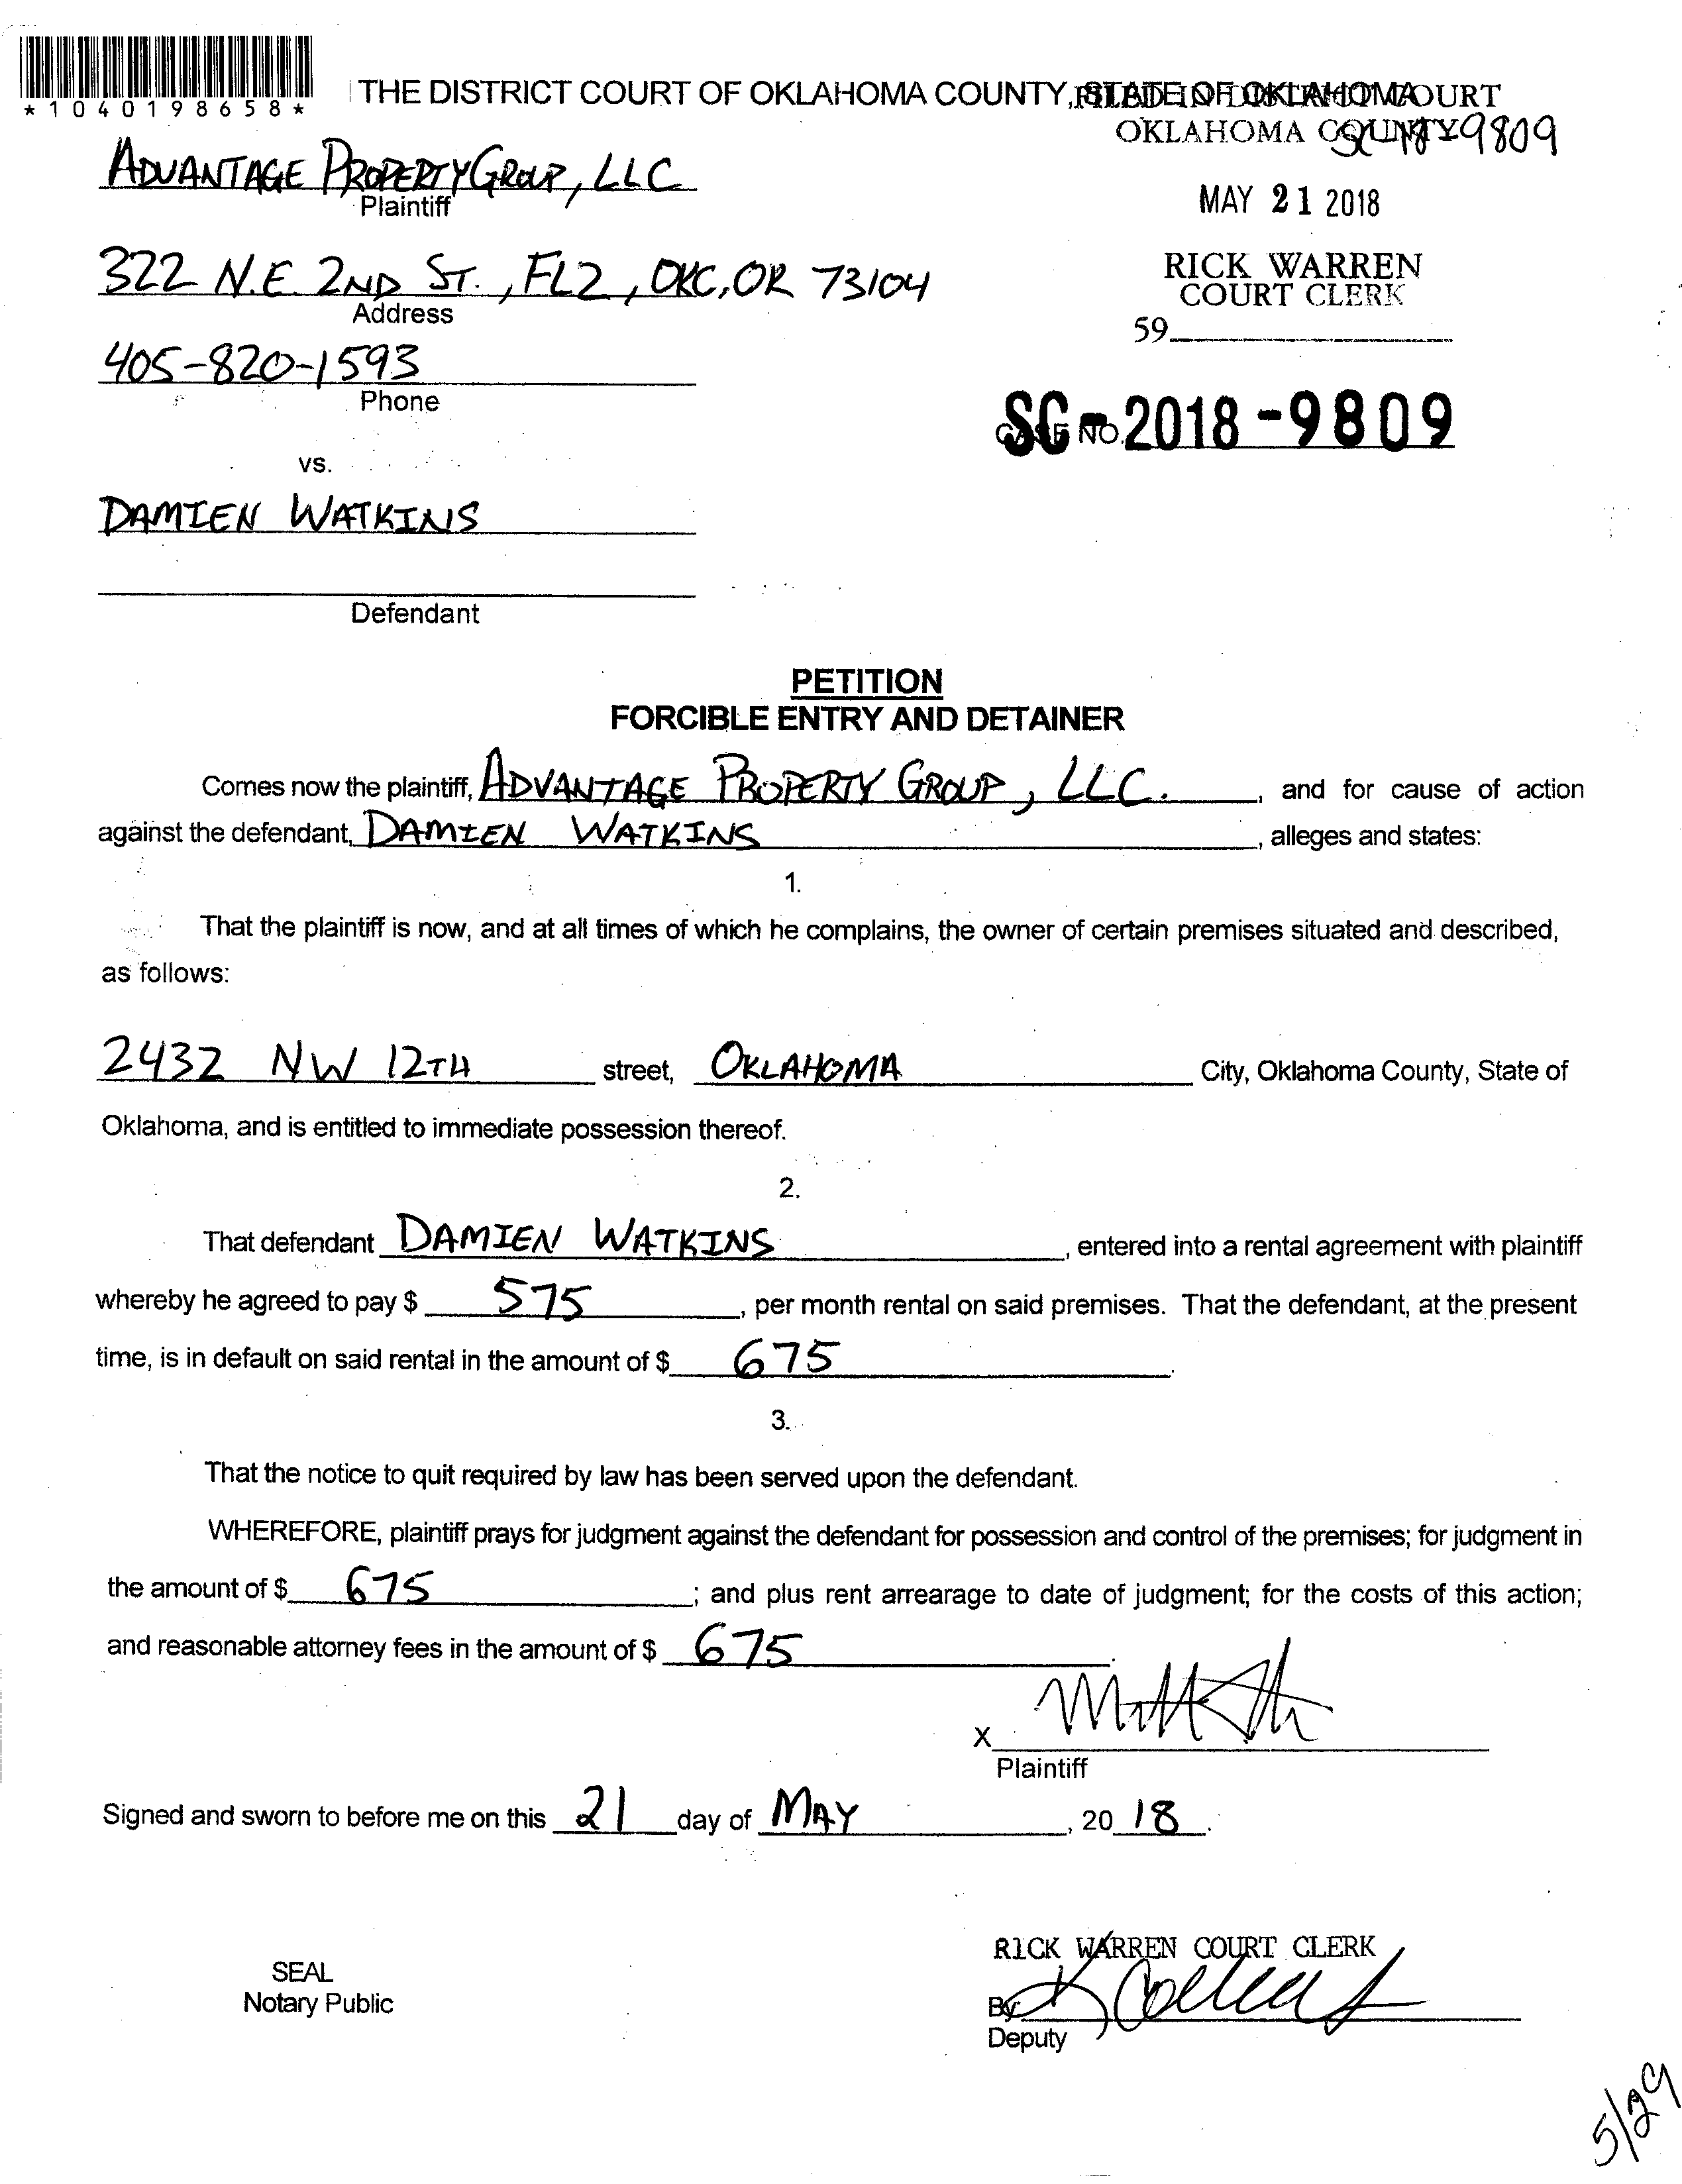 *1040198658*
THE DISTRICT COURT OF OKLAHOMA COUNTY, STATE OF OKLAHOMA
FILED IN DISTRICT COURT
OKLAHOMA COUNTY
SC-18-9809
ADVANTAGE PROPERTY GROUP, LLC
Plaintiff
MAY 21 2018
322 N.E. 2ND ST., FL2, OKC, OK 73104
Address
RICK WARREN
COURT CLERK
59
405-820-1593
Phone
CASE NO. SC-2018-9809
vs.
DAMIEN WATKINS
Defendant
PETITION
FORCIBLE ENTRY AND DETAINER
Comes now the plaintiff, ADVANTAGE PROPERTY GROUP, LLC. , and for cause of action
against the defendant, DAMIEN WATKINS , alleges and states:
1.
That the plaintiff is now, and at all times of which he complains, the owner of certain premises situated and described,
as follows:
2432 NW 12TH street, OKLAHOMA City, Oklahoma County, State of
Oklahoma, and is entitled to immediate possession thereof.
2.
That defendant DAMIEN WATKINS , entered into a rental agreement with plaintiff
whereby he agreed to pay $ 575 , per month rental on said premises. That the defendant, at the present
time, is in default on said rental in the amount of $ 675 .
3.
That the notice to quit required by law has been served upon the defendant.
WHEREFORE, plaintiff prays for judgment against the defendant for possession and control of the premises; for judgment in
the amount of $ 675 ; and plus rent arrearage to date of judgment; for the costs of this action;
and reasonable attorney fees in the amount of $ 675 .
X
Plaintiff
Signed and sworn to before me on this 21 day of MAY , 20 18 .
RICK WARREN COURT CLERK
SEAL
Notary Public
By:
Deputy
5/29